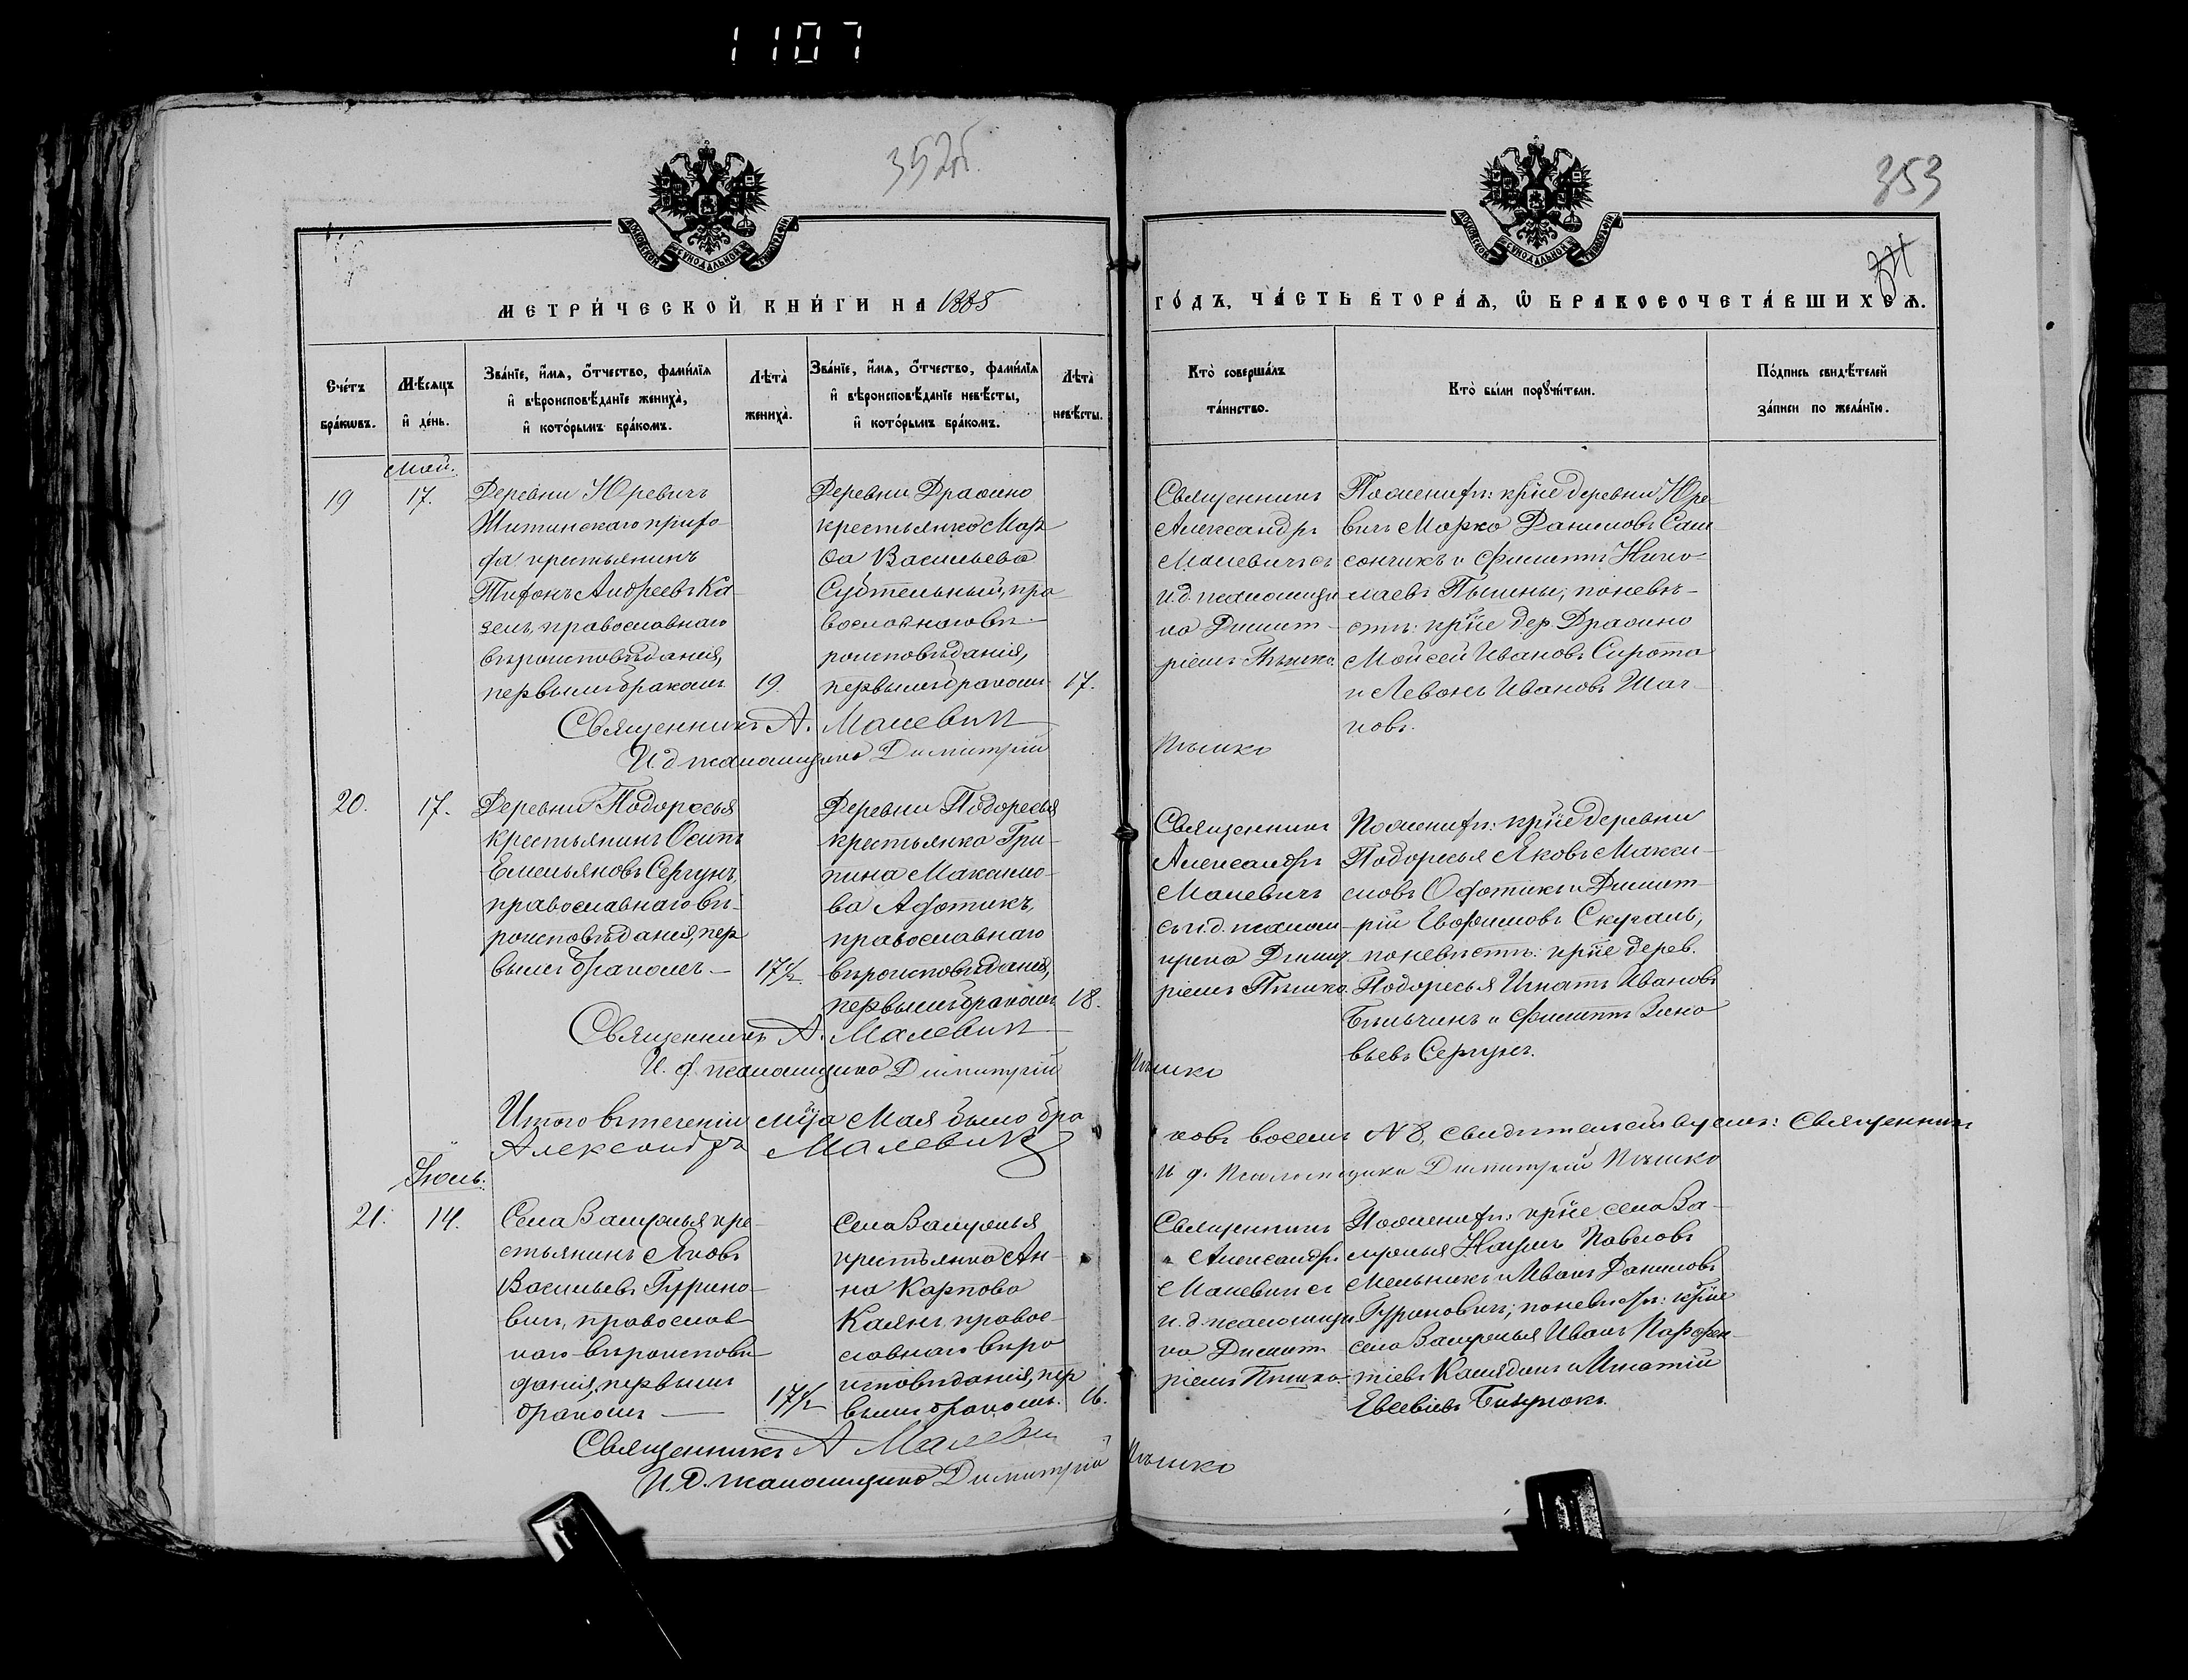 1107
352об.
353
МОСКОВСКОЙ СѴНОДАЛЬНОЙ ТИПОГРАФІИ
МОСКОВСКОЙ СѴНОДАЛЬНОЙ ТИПОГРАФІИ
МЕТРИ́ЧЕСКОЙ КНИ́ГИ НА 1885
ГО́ДЪ, ЧА́СТЬ ВТОРА́Я, Ѡ҆ БРАКОСОЧЕТА́ВШИХСЯ.
Сче́тъ
бра́кѡвъ.
Мѣ́сяцъ
и҆ де́нь.
Зва́нїе, и҆́мя, ѻ҆́тчество, фами́лїя
и҆ вѣроисповѣ́данїе жениха̀,
и҆ кото́рымъ бра́комъ.
Лѣта̀
жениха̀.
Зва́нїе, и҆́мя, ѻ҆́тчество, фами́лїя
и҆ вѣроисповѣ́данїе невѣ́сты,
и҆ кото́рымъ бра́комъ.
Лѣта̀
невѣ́сты.
Кто̀ соверша́лъ
та́инство.
Кто̀ бы́ли порꙋчи́тели.
По́дпись свидѣ́телей
за́писи по жела́нїю.
Май.
19
17.
Деревни Юревичъ
Житинскаго прихо-
да крестьянинъ
Тихонъ Андреевъ Ка-
зелъ, православнаго
вѣроисповѣданія,
первымъ бракомъ
19.
Деревни Дражно
крестьянка Мар-
фа Васильева
православнаго вѣ-
роисповѣданія,
первымъ бракомъ
17.
Священникъ
Александръ
Малевичъ съ
и. д. псаломщи-
ка Димит-
ріемъ Пышко.
По женихѣ: кр̃не деревни Юре-
вичъ Марко Даниловъ Сам-
сончикъ и Филиппъ Нико-
лаевъ по невѣ-
стѣ: кр̃не дер. Дражно
Мойсей Ивановъ Сирота
и Левонъ Ивановъ
Священникъ А. Малевичъ
И. д. псаломщика Димитрій Пышко
20.
17.
Деревни Подоресья
крестьянинъ Осипъ
Емельяновъ Сергунъ,
православнаго вѣ-
роисповѣданія, пер-
вымъ бракомъ —
17½
Деревни Подоресья
крестьянка Гри-
пина Максимо-
ва Афотикъ,
православнаго
вѣроисповѣданія,
первымъ бракомъ
18.
Священникъ
Александръ
Малевичъ
съ и. д. псалом-
щика Димит-
ріемъ Пышко.
По женихѣ: кр̃не деревни
Подоресья Яковъ Макси-
мовъ Офотикъ и Димит-
рій Евфимовъ Скугаль,
по невѣстѣ: кр̃не дерев.
Подоресья Игнатъ Ивановъ
Бильчикъ и Филиппъ Зино-
вьевъ Сергунъ.
Священникъ А. Малевичъ
И. д. псаломщика Димитрій Пышко
Итого въ теченіи мц̃а Мая было бра-
ковъ восемь № 8, свидѣтельствуемъ: Священникъ
Александръ Малевичъ
И. д. Псаломщика Димитрій Пышко
Іюль.
21.
14.
Села Замушья кре-
стьянинъ Яковъ
Васильевъ Гурино-
вичъ, православ-
наго вѣроисповѣ-
данія, первымъ
бракомъ —
17½
Села Замушья
крестьянка Ан-
на Карпова
Калянъ, правос-
лавнаго вѣро-
исповѣданія, пер-
вымъ бракомъ.
16.
Священникъ
Александръ
Малевичъ съ
и. д. псаломщи-
ка Димит-
ріемъ Пышко.
По женихѣ: кр̃не села За-
мушья Наумъ Павловъ
Мельникъ и Иванъ Даниловъ
Гуриновичъ; по невѣстѣ: кр̃не
села Замушья Иванъ Парфен-
тіевъ и Игнатій
Евсевіевъ Бицукъ.
Священникъ А Малевичъ
И. д. псаломщика Димитрій Пышко